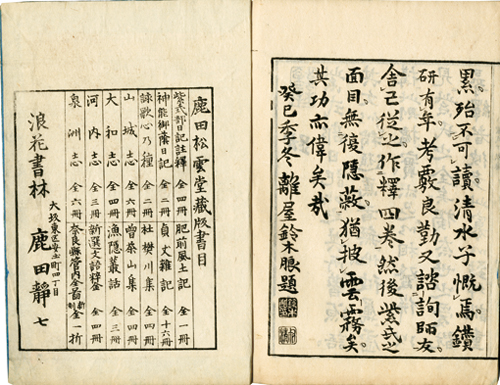 累殆不可讀清水子慨焉鑽
研有年考覈良勤又諮詢師友
舍己從之作釋四巻然後紫式之
面目無復隱蔽猶披雲霧矣
其功亦偉矣哉
癸巳季冬離屋鈴木朖題
鹿田松雲堂藏版書目
紫式部日記註釋 全四冊 肥前風土記 全一冊
神能御蔭日記 全二冊 貞丈雜記 全十六冊
詠歌心乃種 全二冊 杜樊川集 全四冊
山城志 全六冊 山集 全四冊
大和志 全四冊 漁隱叢話 全三冊
河内志 全三冊 新選文語粹金 全四冊
泉州志 全六冊 奈良縣管内全圖 全一折
大坂東區安土町四丁目
浪花書林 鹿田靜七